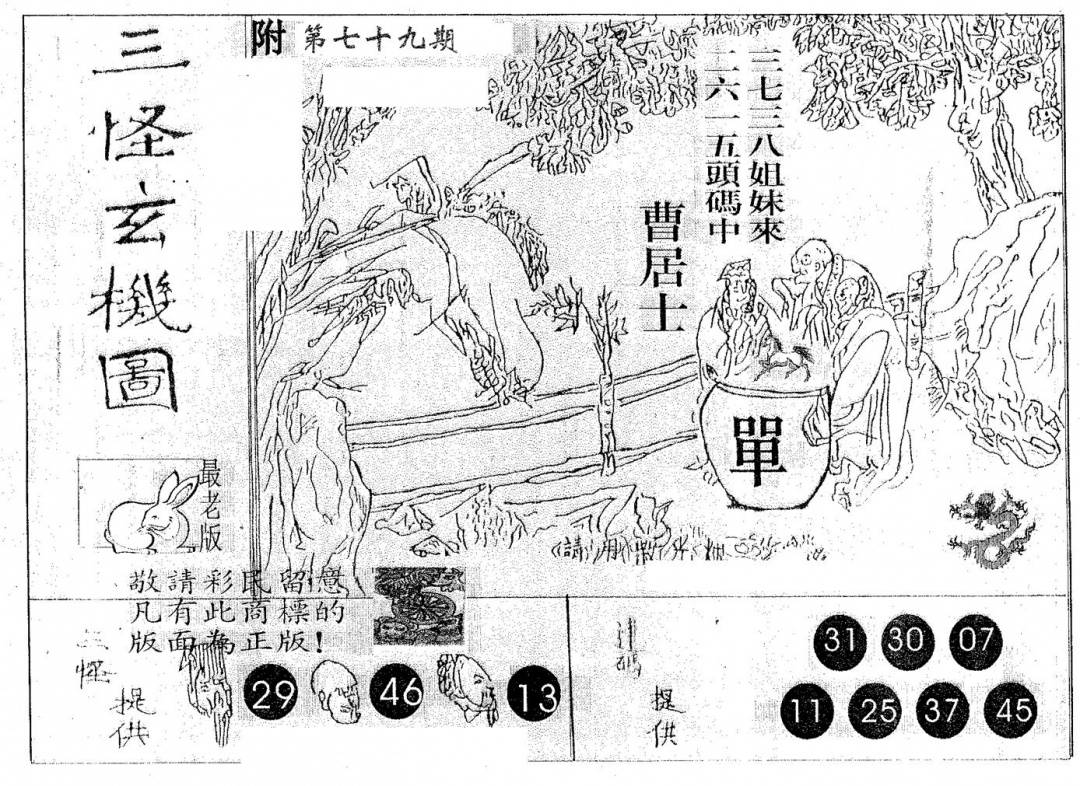 三怪玄機圖
附 第七十九期
二七三八姐妹來
二六一五頭碼中
曹居士
單
最老版
敬請彩民留意
凡有此商標的
版面為正版!
三怪
提供
29 46 13
提供
31 30 07
11 25 37 45